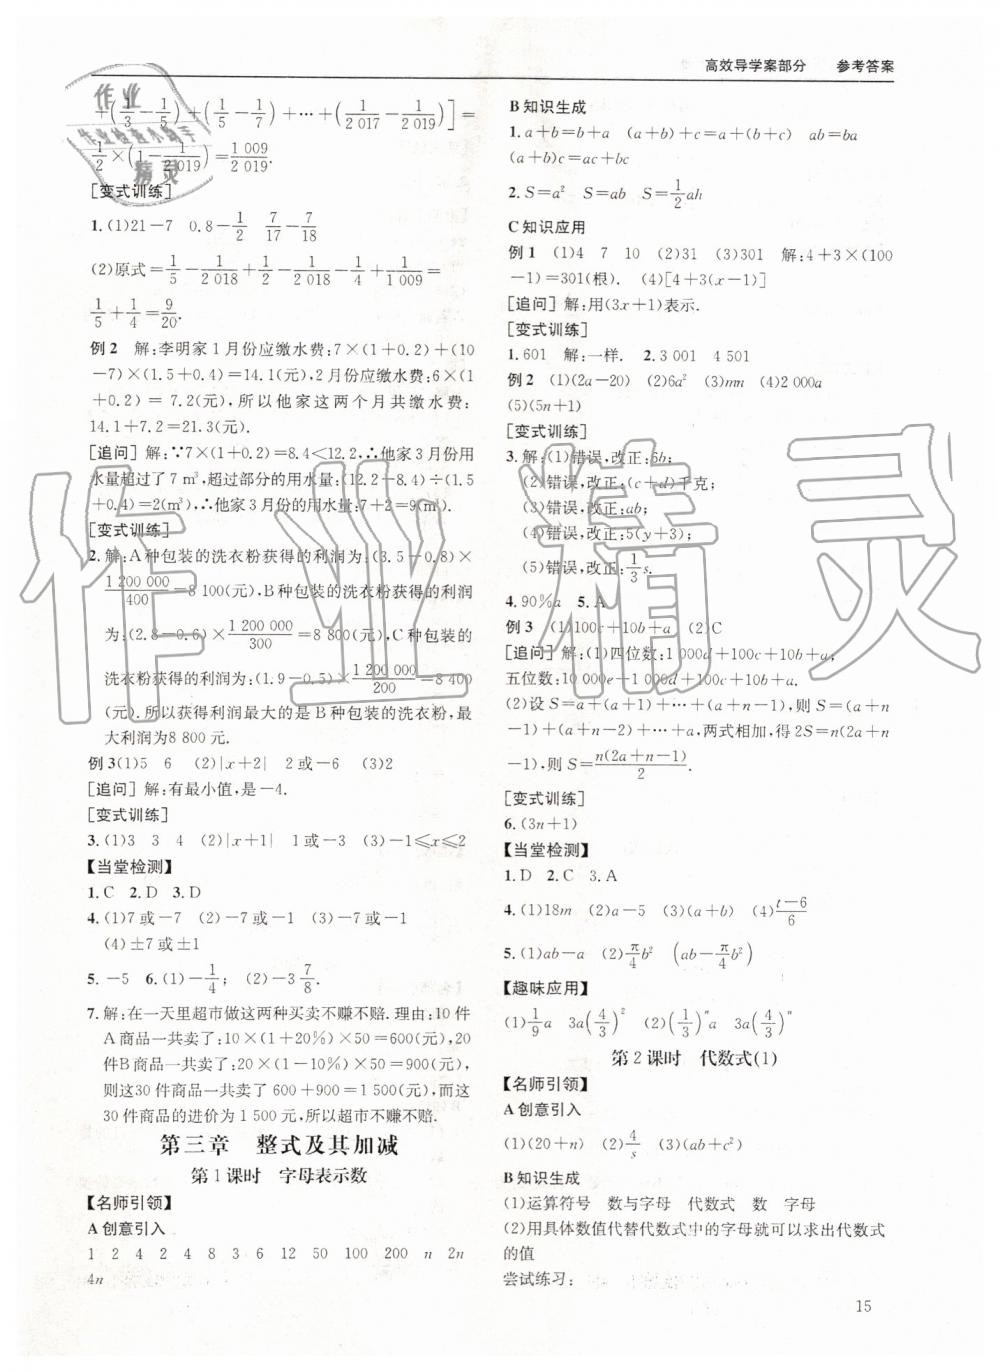 高效导学案部分 参考答案
+(1/3-1/5)+(1/5-1/7)+…+(1/2 017-1/2 019)]=
1/2×(1-1/2 019)=1 009/2 019.
[变式训练]
1.(1)21-7 0.8-1/2 7/17-7/18
(2)原式=1/5-1/2 018+1/2-1/2 018+1/1 009=
1/5+1/4=9/20.
例2 解:李明家1月份应缴水费:7×(1+0.2)+(10
-7)×(1.5+0.4)=14.1(元),2月份应缴水费:6×(1
+0.2)=7.2(元),所以他家这两个月共缴水费:
14.1+7.2=21.3(元).
[追问]解:∵7×(1+0.2)=8.4<12.2,∴他家3月份用
水量超过了7 m³,超过部分的用水量:(12.2-8.4)÷(1.5
+0.4)=2(m³),∴他家3月份的用水量:7+2=9(m³).
[变式训练]
2.解:A种包装的洗衣粉获得的利润为:(3.5-0.8)×
1 200 000/400=8 100(元),B种包装的洗衣粉获得的利润
为:(2.8-0.6)×1 200 000/300=8 800(元),C种包装的
洗衣粉获得的利润为:(1.9-0.5)×1 200 000/200=8 400
(元).所以获得利润最大的是B种包装的洗衣粉,最
大利润为8 800元.
例3(1)5 6 (2)|x+2| 2或-6 (3)2
[追问]解:有最小值,是-4.
[变式训练]
3.(1)3 3 4 (2)|x+1| 1或-3 (3)-1≤x≤2
【当堂检测】
1.C 2.D 3.D
4.(1)7或-7 (2)-1或-7 (3)-7或-1
(4)±7或±1
5.-5 6.(1)-1/4; (2)-3 7/8.
7.解:在一天里超市做这两种买卖不赚不赔.理由:10件
A商品一共卖了:10×(1+20%)×50=600(元),20
件B商品一共卖了:20×(1-10%)×50=900(元),
则这30件商品一共卖了600+900=1 500(元),而这
30件商品的进价为1 500元,所以超市不赚不赔.
第三章 整式及其加减
第1课时 字母表示数
【名师引领】
A创意引入
1 2 4 2 4 8 3 6 12 50 100 200 n 2n
4n
B知识生成
1.a+b=b+a (a+b)+c=a+(b+c) ab=ba
(a+b)c=ac+bc
2.S=a² S=ab S=1/2ah
C知识应用
例1 (1)4 7 10 (2)31 (3)301 解:4+3×(100
-1)=301(根). (4)[4+3(x-1)]
[追问]解:用(3x+1)表示.
[变式训练]
1.601 解:一样. 2.3 001 4 501
例2 (1)(2a-20) (2)6a² (3)mn (4)2 000a
(5)(5n+1)
[变式训练]
3.解:(1)错误,改正:6b;
(2)错误,改正:(c+d)千克;
(3)错误,改正:ab;
(4)错误,改正:5(y+3);
(5)错误,改正:1/3s.
4.90%a 5.A
例3 (1)100c+10b+a (2)C
[追问]解:(1)四位数:1 000d+100c+10b+a;
五位数:10 000e+1 000d+100c+10b+a.
(2)设S=a+(a+1)+…+(a+n-1),则S=(a+n
-1)+(a+n-2)+…+a,两式相加,得2S=n(2a+n
-1),则S=n(2a+n-1)/2.
[变式训练]
6.(3n+1)
【当堂检测】
1.D 2.C 3.A
4.(1)18m (2)a-5 (3)(a+b) (4)t-6/6
5.(1)ab-a (2)π/4b² (ab-π/4b²)
【趣味应用】
(1)1/9a 3a(4/3)² (2)(1/3)ⁿa 3a(4/3)ⁿ
第2课时 代数式(1)
【名师引领】
A创意引入
(1)(20+n) (2)4/s
B知识生成
(1)运算符号 数与字母 代数式 数 字母
(2)用具体数值代替代数式中的字母就可以求出代数式
的值
尝试练习:
15
作业精灵
作业检查小帮手
作业精灵